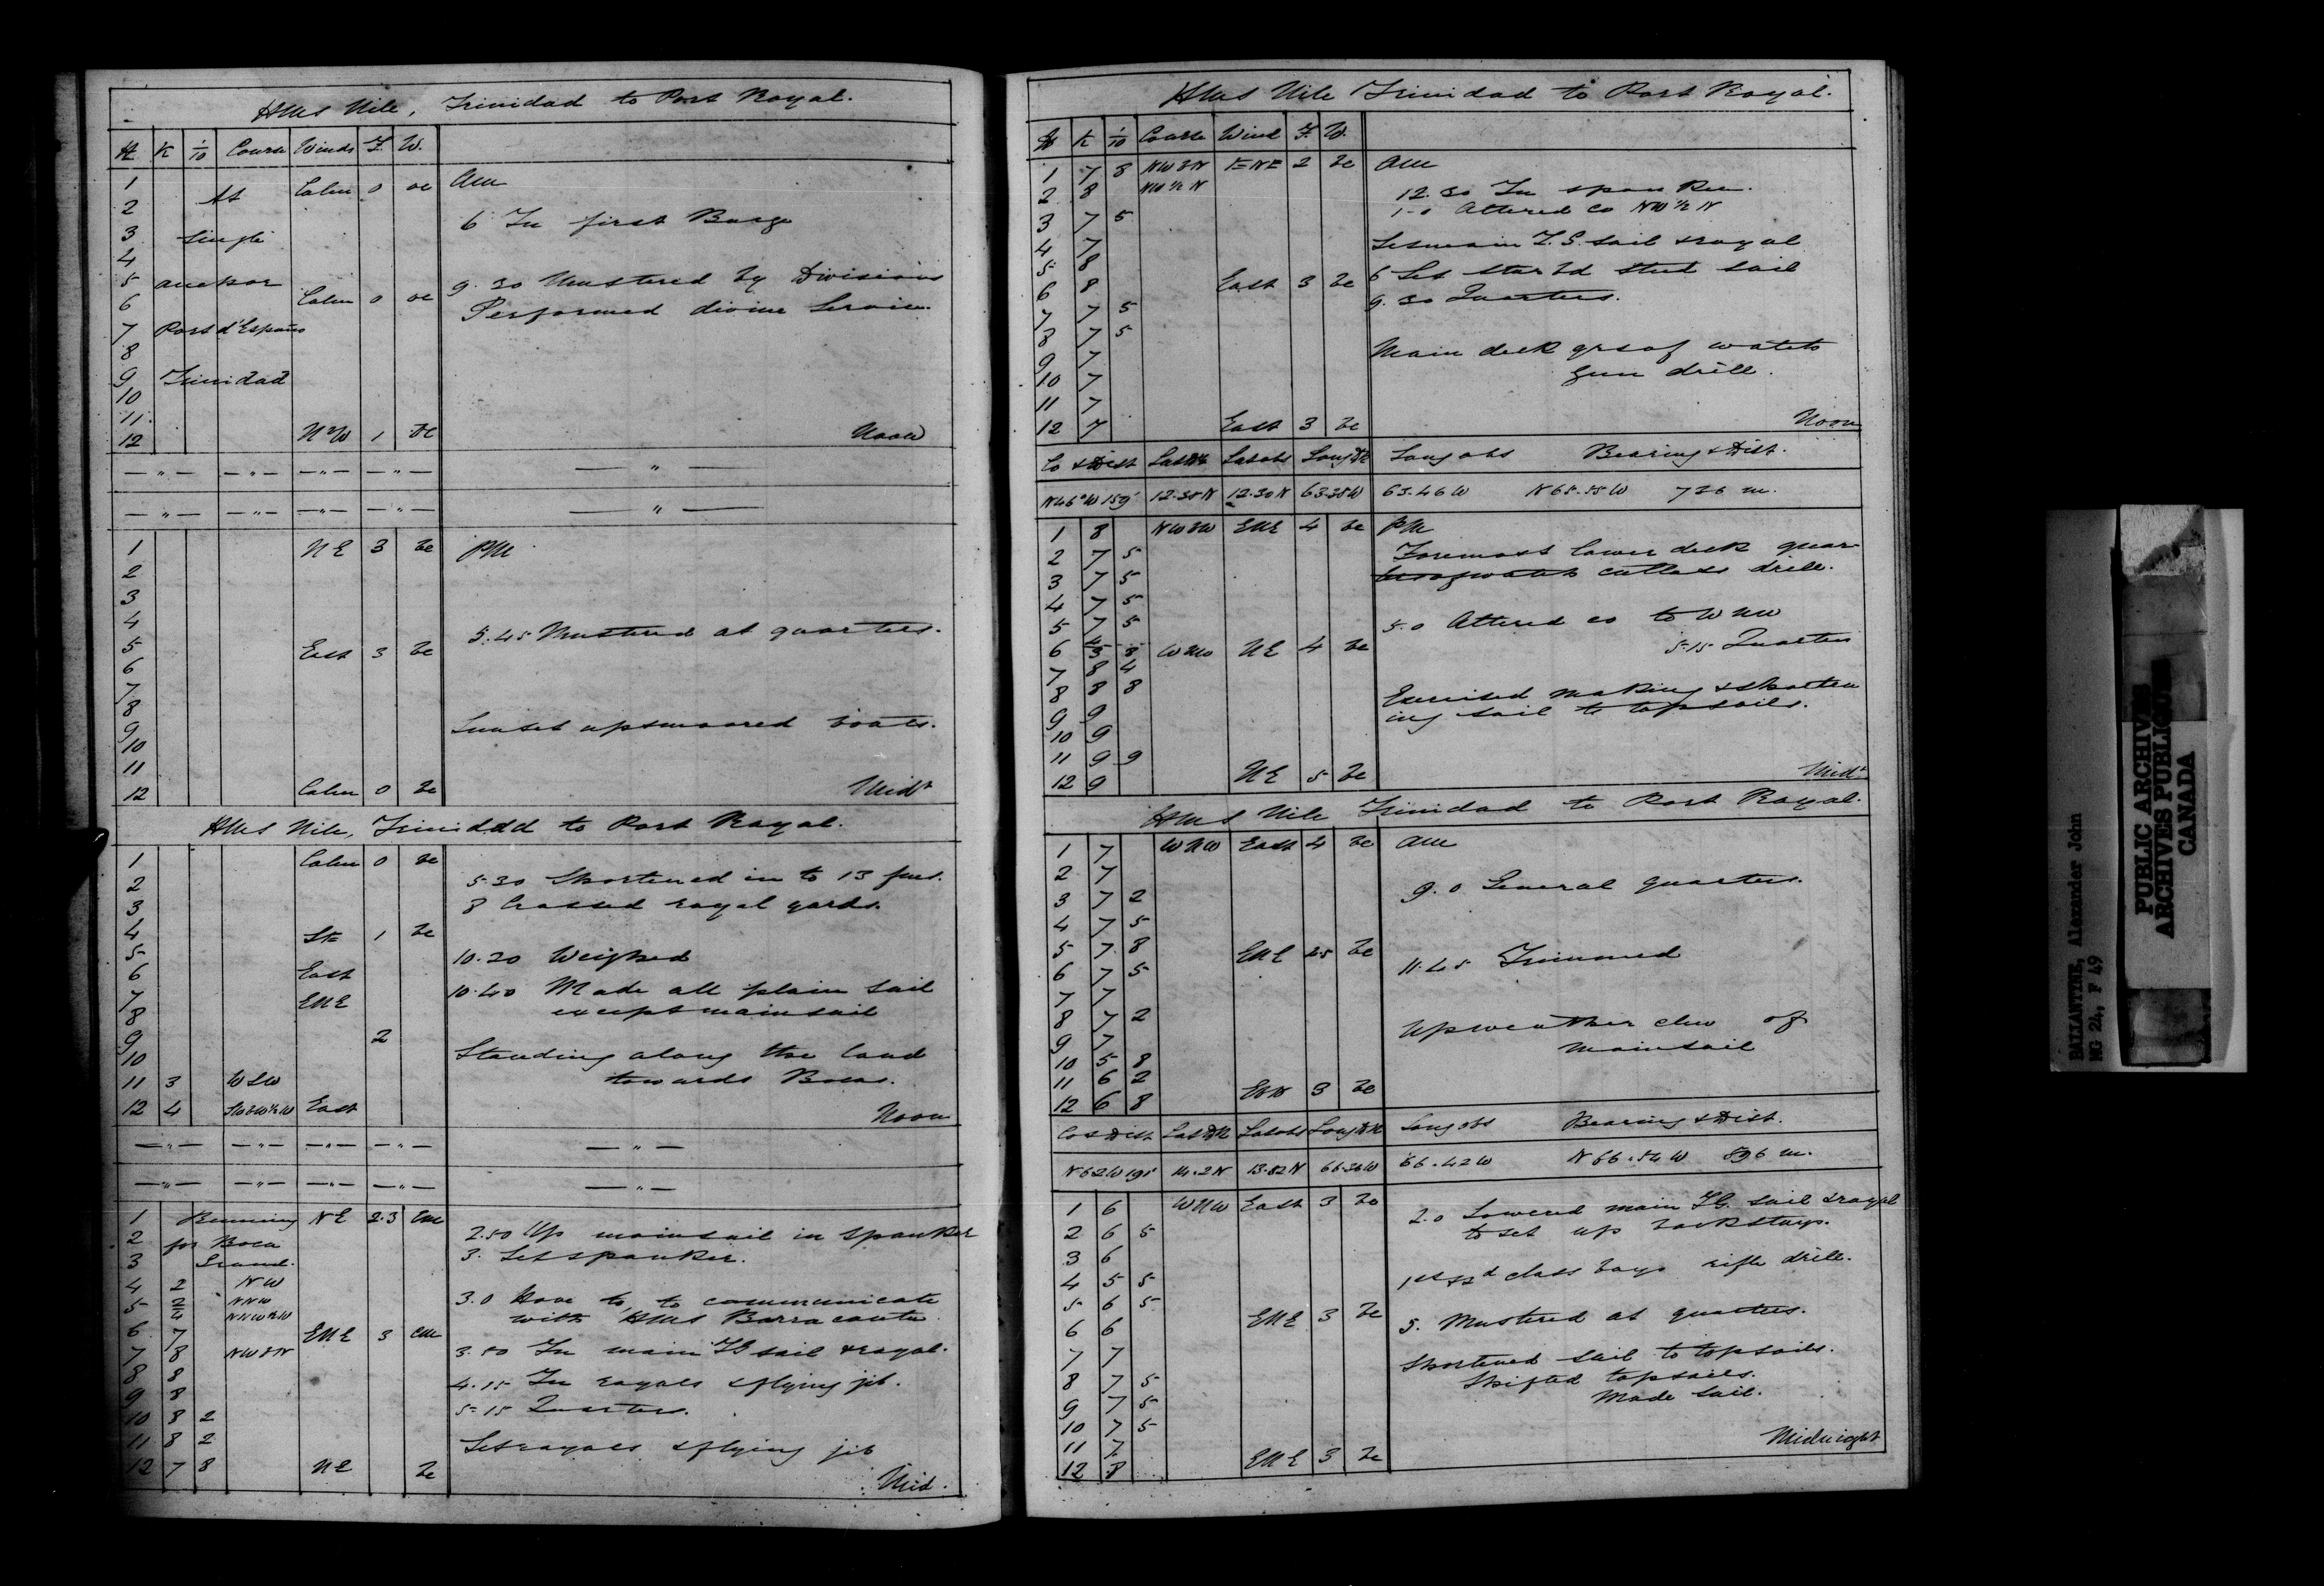 HMS Nile, Trinidad to Port Royal.
H K 1/10 Course Winds F. W.
1 At Calm 0 oc AM
2
3 Single 6 In first Barge
4
5 anchor 9.30 Mustered by Divisions
6 Calm 0 oc Performed divine Service.
7 Port d'Espano
8
9 Trinidad
10
11
12 NW 1 bc Noon
— " — — " — — " — — " — — " —
— " — — " — — " — — " — — " —
1 NE 3 bc PM
2
3
4
5 East 3 bc 5.45 Mustered at quarters.
6
7
8
9 Sunset up & moored boats.
10
11
12 Calm 0 bc Midt
HMS Nile, Trinidad to Port Royal.
1 Calm 0 bc
2 5.30 Shortened in to 13 fms.
3 8 Crossed royal yards.
4 SE 1 bc
5 10.20 Weighed
6 East
7 ENE 10.40 Made all plain sail
8 except mainsail
9 2
10 Standing along the land
11 3 WSW towards Bocas.
12 4 SWbW½W East Noon
— " — — " — — " — — " — — " —
— " — — " — — " — — " — — " —
1 Running NE 2.3 cm
2 for Boca 2.50 Up mainsail in spanker
3 Grand. 3. Set spanker.
4 2 NW
5 2/4 NNW NNW½W 3.0 Hove to, to communicate
with HMS Barracouta.
6 7 ENE 3 cm
7 8 NWbN 3.50 In main TG sail & royal.
8 8
9 8 4.15 In royals & flying jib.
10 8 2 5-15 Quarters.
11 8 2 Set royals & flying jib
12 7 8 NE bc Mid.
HMS Nile Trinidad to Port Royal.
H K 1/10 Course Wind F. W.
1 7 8 NWbN ENE 2 bc AM
2 8 NW½N 12.30 In spanker.
3 7 5 1-0 Altered co NW½N
4 7 Set main T.G. sail & royal
5 8 6 Set starbd stud sail
6 8 East 3 bc 9.30 Quarters.
7 7 5
8 7 5 Main deck qrs of watch
9 7 gun drill.
10 7
11 7
12 7 East 3 bc Noon
Co & Dist Lat DR Lat obs Long DR Long obs Bearing & Dist.
N46°W 159' 12.38N 12.30N 63.38W 63.46W N65.55W 726 m.
1 8 NWbW ENE 4 bc PM
2 7 5 Foremost lower deck quar-
3 7 5 ters of watch cutlass drill.
4 7 5
5 7 5 5.0 Altered co to WNW
6 8 WNW NE 4 bc 5-15 Quarters
7 8 4
8 8 8 Exercised making & shorten
9 9 ing sail to topsails.
10 9
11 9 9
12 9 NE 5 bc Midt
HMS Nile Trinidad to Port Royal.
1 7 WNW East 4 bc AM
2 7
3 7 2 9.0 General quarters.
4 7 5
5 7 8 ENE 2.5 bc
6 7 5 11.45 Trimmed
7 7
8 7 2 Up weather clew of
9 7 mainsail
10 5 8
11 6 2
12 6 8 EbN 3 bc
Co & Dist Lat DR Lat obs Long DR Long obs Bearing & Dist.
N62W 191' 14.2N 13.52N 66.36W 66.42W N66.54W 896 m.
1 6 WNW East 3 bc 2.0 Lowered main TG. sail & royal
2 6 5 to set up backstays.
3 6
4 5 5 1st & 2d class boys rifle drill.
5 6 5
6 6 ENE 3 bc 5. Mustered at quarters.
7 7
8 7 5 Shortened sail to topsails.
9 7 5 Shifted topsails.
10 7 5 Made sail.
11 7
12 8 ENE 3 bc Midnight
BALLANTINE, Alexander John
MG 24, F 49
PUBLIC ARCHIVES
ARCHIVES PUBLIQUES
CANADA